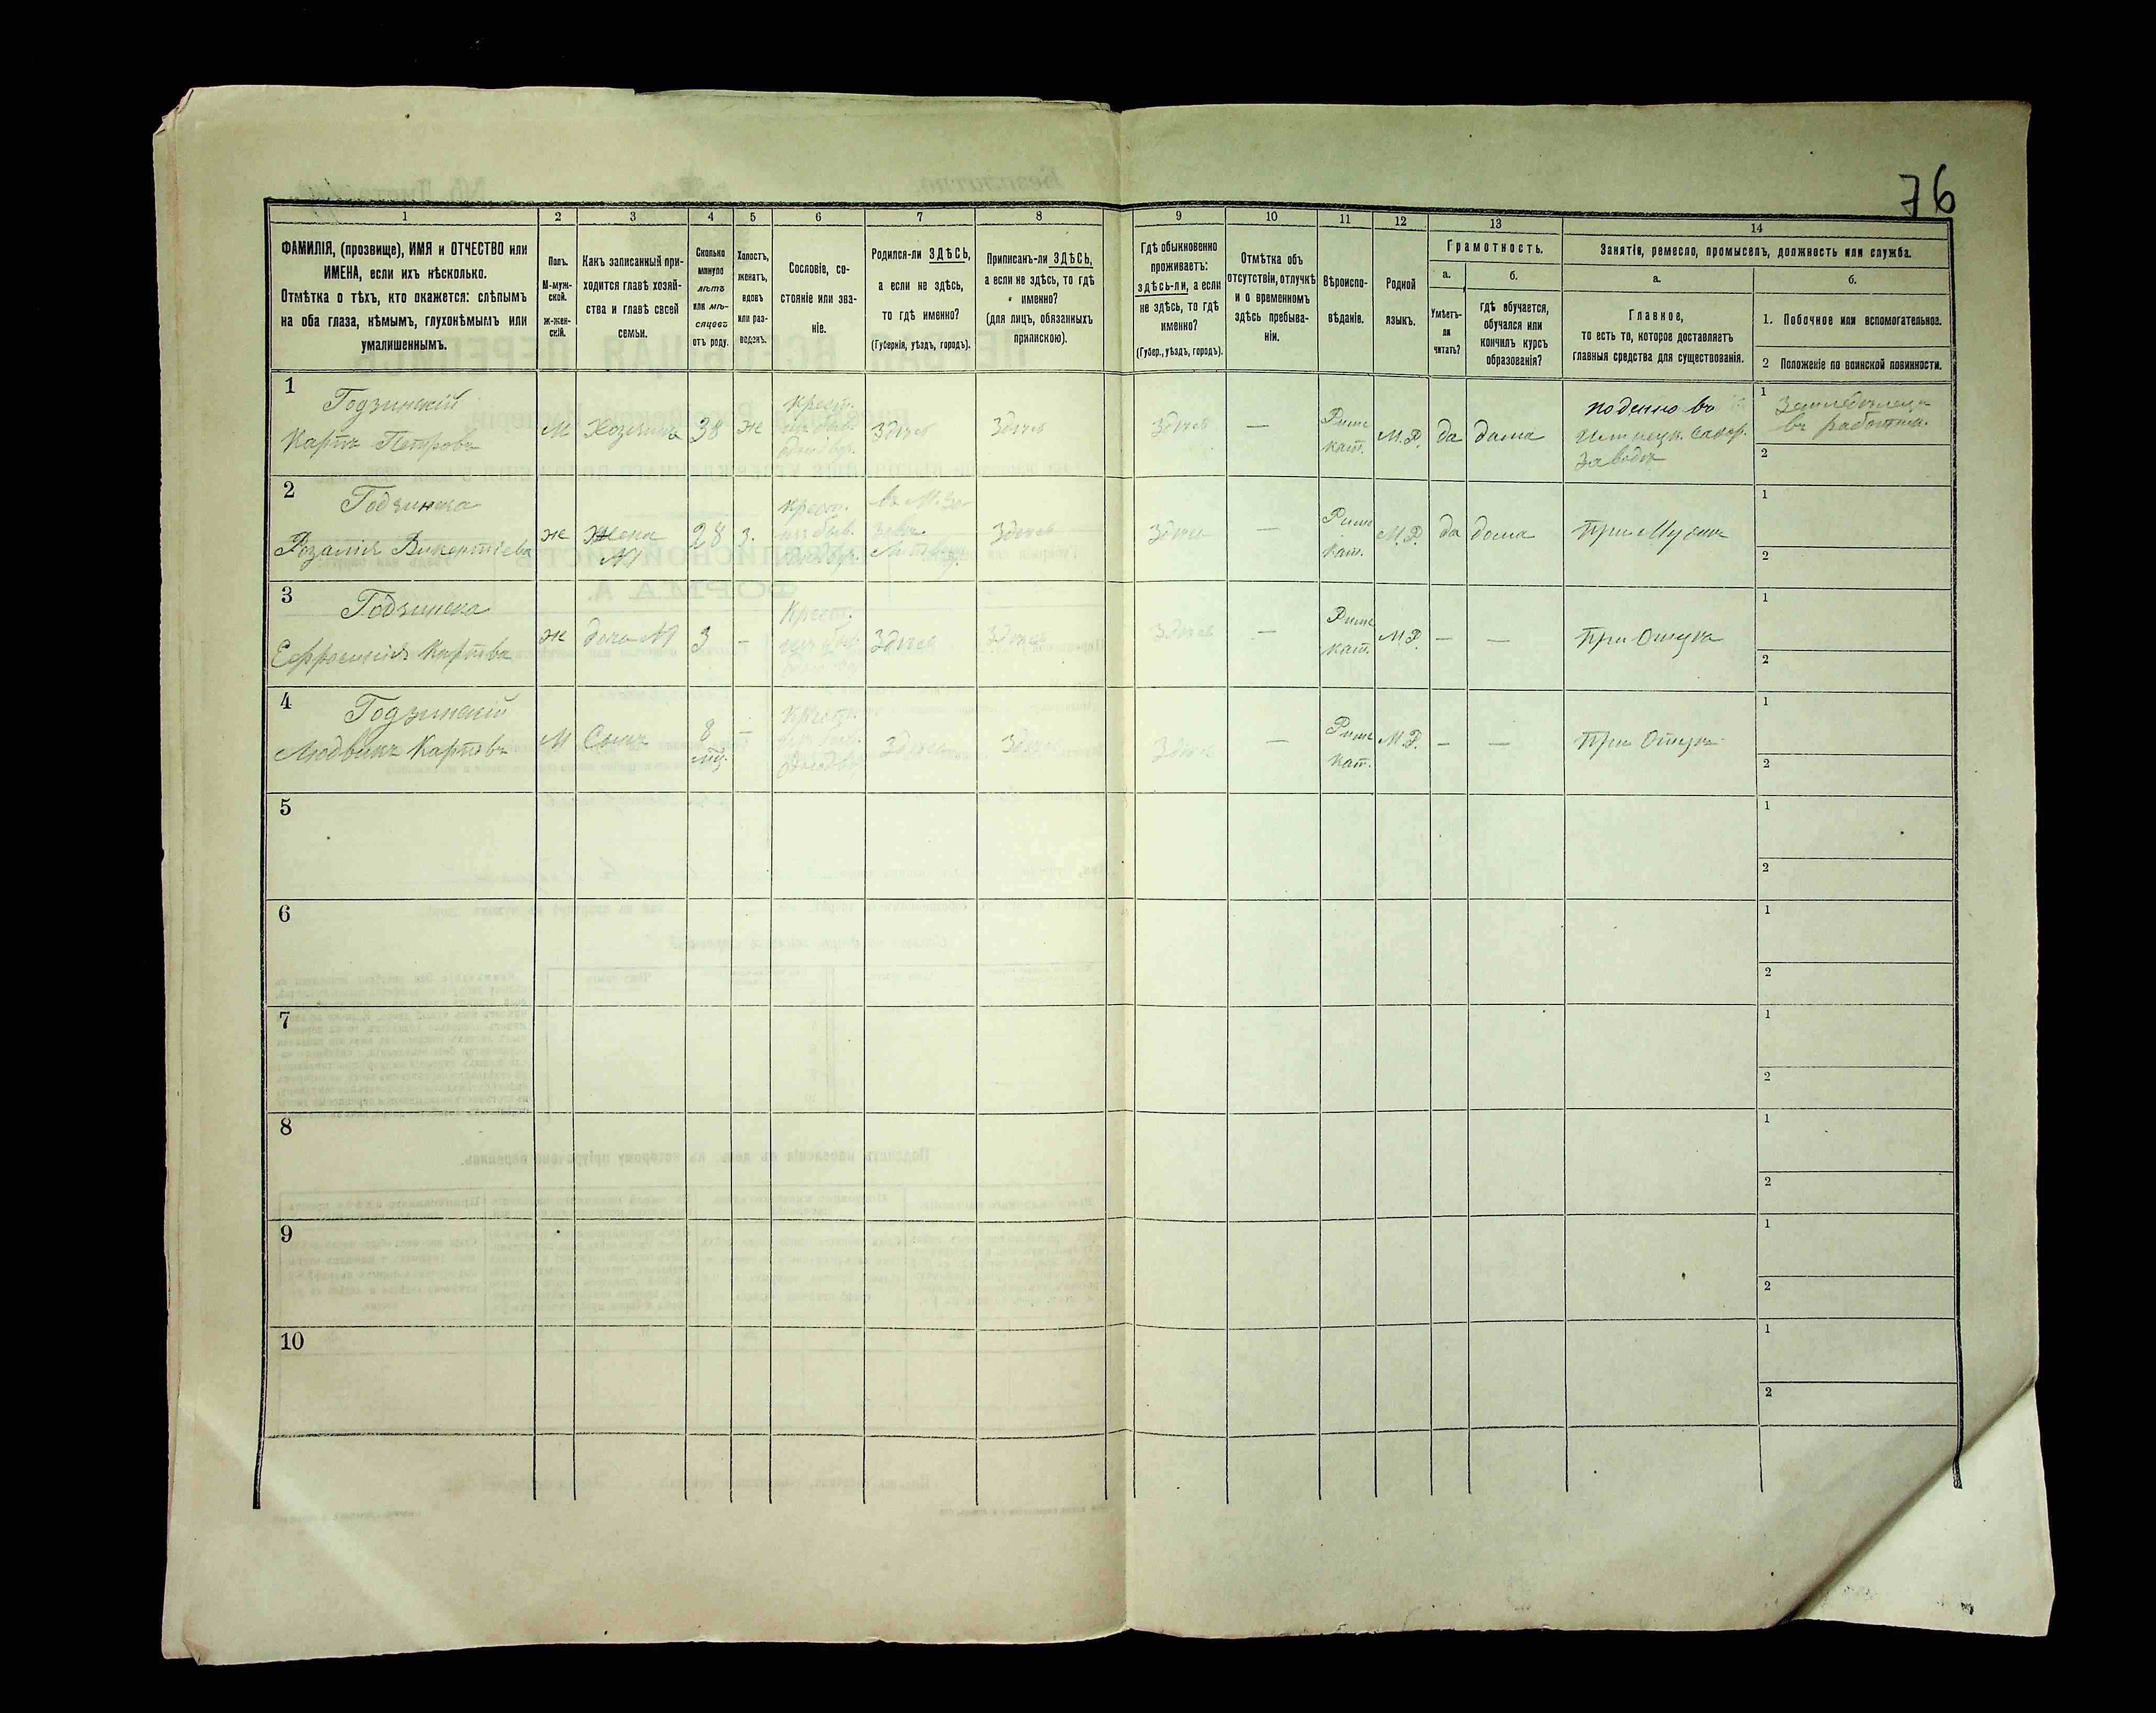 76
1 2 3 4 5 6 7 8 9 10 11 12 13 14
ФАМИЛІЯ, (прозвище), ИМЯ и ОТЧЕСТВО или
ИМЕНА, если ихъ нѣсколько.
Отмѣтка о тѣхъ, кто окажется: слѣпымъ
на оба глаза, нѣмымъ, глухонѣмымъ или
умалишеннымъ.
Полъ.
М-муж-
ской.
ж-жен-
скій.
Какъ записанный при-
ходится главѣ хозяй-
ства и главѣ своей
семьи.
Сколько
минуло
лѣтъ
или мѣ-
сяцевъ
отъ роду.
Холостъ,
женатъ,
вдовъ
или раз-
веденъ.
Сословіе, со-
стояніе или зва-
ніе.
Родился-ли ЗДѢСЬ,
а если не здѣсь,
то гдѣ именно?
(Губернія, уѣздъ, городъ).
Приписанъ-ли ЗДѢСЬ,
а если не здѣсь, то гдѣ
именно?
(для лицъ, обязанныхъ
припискою).
Гдѣ обыкновенно
проживаетъ:
здѣсь-ли, а если
не здѣсь, то гдѣ
именно?
(Губер., уѣздъ, городъ).
Отмѣтка объ
отсутствіи, отлучкѣ
и о временномъ
здѣсь пребыва-
ніи.
Вѣроиспо-
вѣданіе.
Родной
языкъ.
Грамотность.
а.
Умѣетъ-
ли
читать?
б.
гдѣ обучается,
обучался или
кончилъ курсъ
образованія?
Занятіе, ремесло, промыселъ, должность или служба.
а.
Главное,
то есть то, которое доставляетъ
главныя средства для существованія.
б.
1. Побочное или вспомогательное.
2 Положеніе по воинской повинности.
1
Годзинскій
Карпъ Петровъ
М
Хозяинъ
38
ж
Крест.
Здѣсь
Здѣсь
Здѣсь
—
Римс
кат.
М.Р.
да
дома
поденно въ
Сахар.
заводѣ
1
въ
2
2
Годзинска
Розалія Викентіева
ж
Жена
№1
28
з.
Крест.
из быв.
въ М.
Здѣсь
Здѣсь
—
Римс
кат.
М.Р.
да
дома
При Мужѣ
1
2
3
Годзинска
Ефросинія Карпова
ж
дочь №1
3
—
Крест.
Здѣсь
Здѣсь
Здѣсь
—
Римс
кат.
М.Р.
—
—
При Отцѣ
1
2
4
Годзинскій
Людвикъ Карповъ
М
Сынъ
8
мѣ.
—
Крест.
Здѣсь
Здѣсь
Здѣсь
—
Римс
кат.
М.Р.
—
—
При Отцѣ
1
2
5
1
2
6
1
2
7
1
2
8
1
2
9
1
2
10
1
2